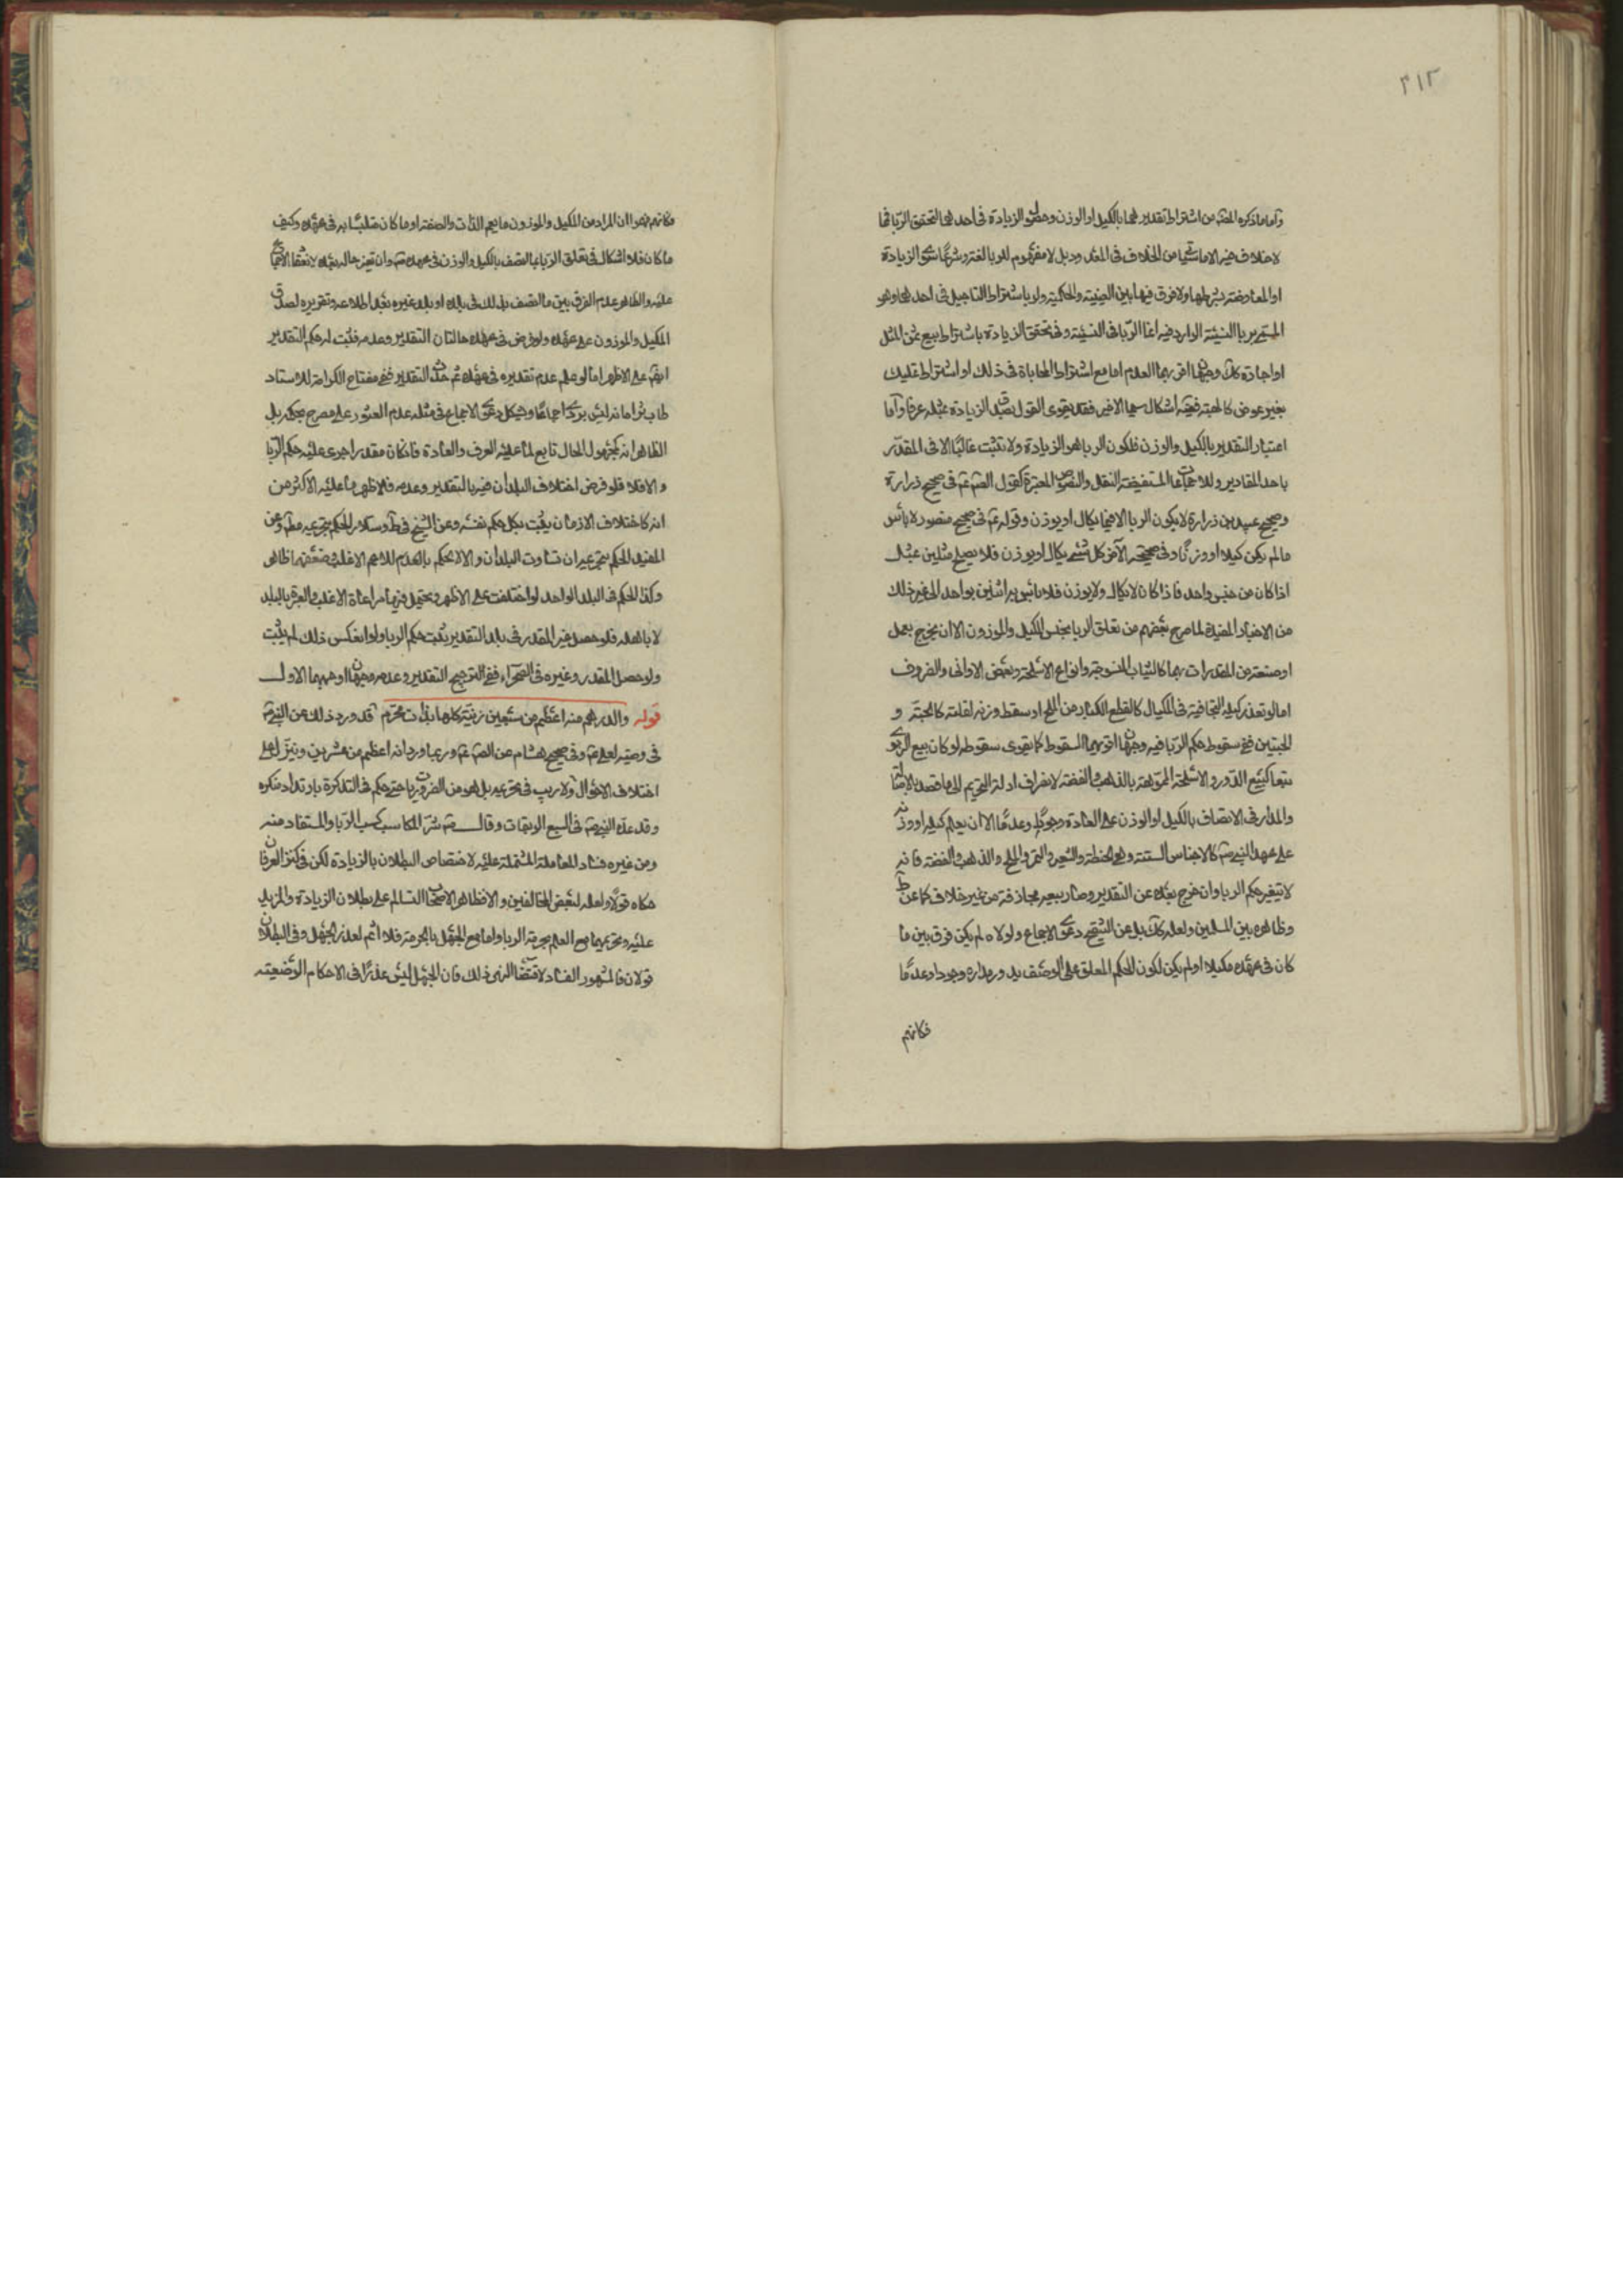 ٣١٢
وآما ما ذكره المصنف من اشتراط تقديرهما بالكيل او الوزن وحصول الزيادة فى احدهما لتحقق الربا فمما
لا خلاف فيه الا ما من الخلاف فى المعدود بل لا مفهوم للربا لغة وشرعًا سوى الزيادة
او المعاوضة بشرطها ولا فرق فيها بين العينية والحكمية ولو باشتراط التاجيل فى احدهما وهو
المسمى بربا النسيئة الوارد فيه انما الربا فى النسيئة وفى تحقق الزيادة باشتراط بيع بثمن المثل
او اجارة كك وجهان اقربهما العدم اما مع اشتراط المحاباة فى ذلك او اشتراط تمليك
بغير عوض كالهبة ففيه اشكال سيما الاخير فقد يقوى القول بصدق الزيادة بمثله عرفا وآما
اعتبار التقدير بالكيل والوزن فلكون الربا هو الزيادة ولا تثبت غالبًا الا فى المقدّر
باحد المقادير وللاجماعات المستفيضة النقل والنصوص المعتبرة كقول الصم عم فى صحيح زرارة
وصحيح عبيد بن زرارة لا يكون الربا الا فيما يكال او يوزن وقوله عم فى صحيح منصور لا بأس
ما لم يكن كيلا او وزنًا وفى صحيحه الآخر كل شئ يكال او يوزن فلا يصلح مثلين بمثل
اذا كان من جنس واحد فاذا كان لا يكال ولا يوزن فلا بأس به اثنين بواحد الى غير ذلك
من الاخبار المفيدة لما صرح بعضهم من تعلق الربا بجنس المكيل والموزون الا ان يخرج بعمل
او صنعة من المقدرات بهما كالثياب المنسوجة وانواع الاسلحة وبعض الاوانى والظروف
اما لو تعذر كيله لتجافيه فى المكيال كالقطع الكبار من الملح او سقط وزنه لقلته كالحبة و
الحبتين ففى سقوط حكم الربا فيه وجهان اقربهما السقوط كما يقوى سقوطه لو كان بيع الربوى
تبعا كبيع الدّور والاسلحة المموّهة بالذهب والفضة لانصراف ادلة التحريم الى ما قصد بالاصالة
والمدار فى الاتصاف بالكيل او الوزن على العادة وجودًا وعدمًا الا ان يعلم كيله او وزنه
على عهد النبى ص كالاجناس الستة وهى الحنطة والشعير والتمر والملح والذهب والفضة فانه
لا يتغير حكم الربا وان خرج بعده عن التقدير وصار بيعه مجازفة من غير خلاف كما عن ط
وظاهره بين المسلمين ولعله كك بل عن التنقيح دعوى الاجماع ولولاه لم يكن فرق بين ما
كان فى عهده مكيلا او لم يكن لكون الحكم المعلق على الوصف يدور مداره وجودا وعدمًا
فكانهم
فكانهم فهموا ان المراد من المكيل والموزون ما يعم الذات والصفة او ما كان متلبسًا به فى عهده وكيف
ما كان فلا اشكال فى تعلق الربا بما اتصف بالكيل والوزن فى عهده ص وان تغير حاله بعده لانعقاد الاجماع
عليه والظاهر عدم الفرق بين ما اتصف بذلك فى بلده او بلد غيره بعد اطلاعه وتقريره لصدق
المكيل والموزون على عهده ولو فرض فى عهده حالتان التقدير وعدمه فثبت له حكم التقدير
ايضًا على الاظهر اما لو علم عدم تقديره فى عهده ثم حدث التقدير ففى مفتاح الكرامة للاستاد
طاب ثراه انه ليس بربوى اجماعًا ويشكل دعوى الاجماع فى مثله عدم العثور على مصرح بحكمه بل
الظاهر انه كمجهول الحال تابع لما عليه العرف والعادة فان كان مقدرا جرى عليه حكم الربا
والا فلا فلو فرض اختلاف البلدان فيه بالتقدير وعدمه فالاظهر ما عليه الاكثر من
انه كاختلاف الازمان يثبت بكل حكم نفسه وعن الشيخ فى ط وسلار الحكم بتحريمه مطلقًا وعن
المفيد الحكم بتحريمه ان تساوت البلدان والا لا يحكم بالعدم للاعم الاغلب وضعفهما ظاهر
وكذا الحكم فى البلد الواحد لو اختلفت على الاظهر ويحتمل فيهما مراعاة الاغلب والعبرة بالبلد
لا باهله فلو حصل غير المقدر فى بلد التقدير يثبت حكم الربا ولو انعكس ذلك لم يثبت
ولو حصل المقدر وغيره فى الصحراء ففى التوجيح التقدير وعدمه وجهان اوجههما الاول
قوله والدرهم منه اعظم من سبعين زنية كلها بذات محرم قد ورد ذلك عن النبى ص
فى وصيته لعلى عم وفى صحيح هشام عن الصم عم وربما ورد انه اعظم من عشرين وينزل على
اختلاف الاحوال ولا ريب فى تحريمه بل هو من الضروريات حتى حكم فى التذكرة بارتداد منكره
وقد عدّه النبى ص فى السبع الموبقات وقال ص شرّ المكاسب كسب الربا والمستفاد منه
ومن غيره فساد المعاملة المشتملة عليه لا اختصاص البطلان بالزيادة لكن فى كنز العرفان
حكاه قولًا ولعله لبعض المخالفين والا فظاهر الاصحاب التسالم على بطلان الزيادة والمزيد
عليه وتحريمهما مع العلم بحرمة الربا واما مع الجهل بالحرمة فلا اثم لعذر الجهل وفى البطلان
قولان فالمشهور الفساد لاقتضاء النهى ذلك فان الجهل ليس عذرًا فى الاحكام الوضعية